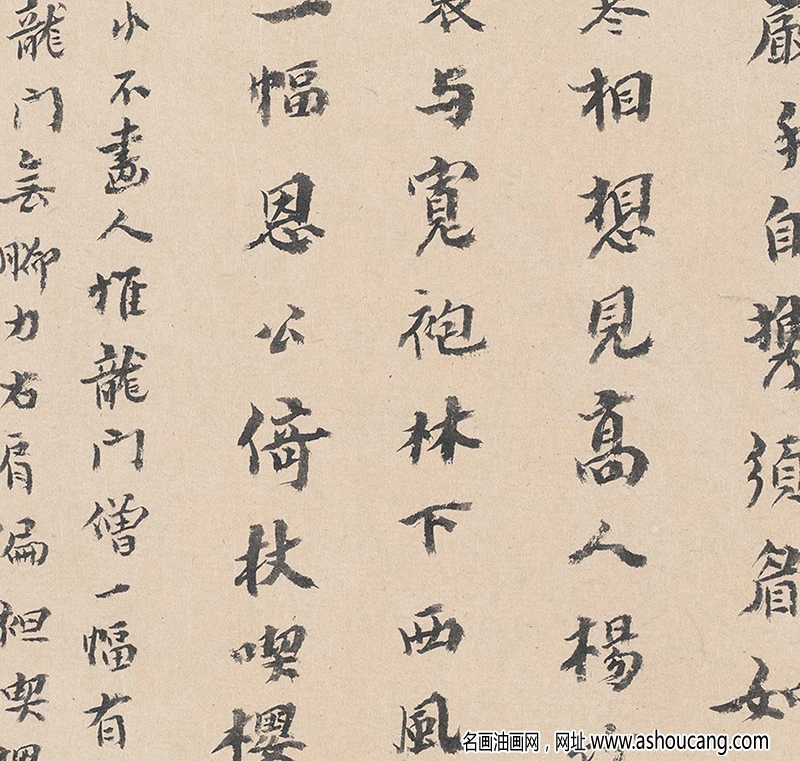 嚴自攜須眉如
相想見高人楊
与寬袍林下西風
一幅恩公倚杖喫櫻
小不畫人惟龍門僧一幅有
龍門無腳力右肩偏袒喫
名画油画网，网址 www.ashoucang.com